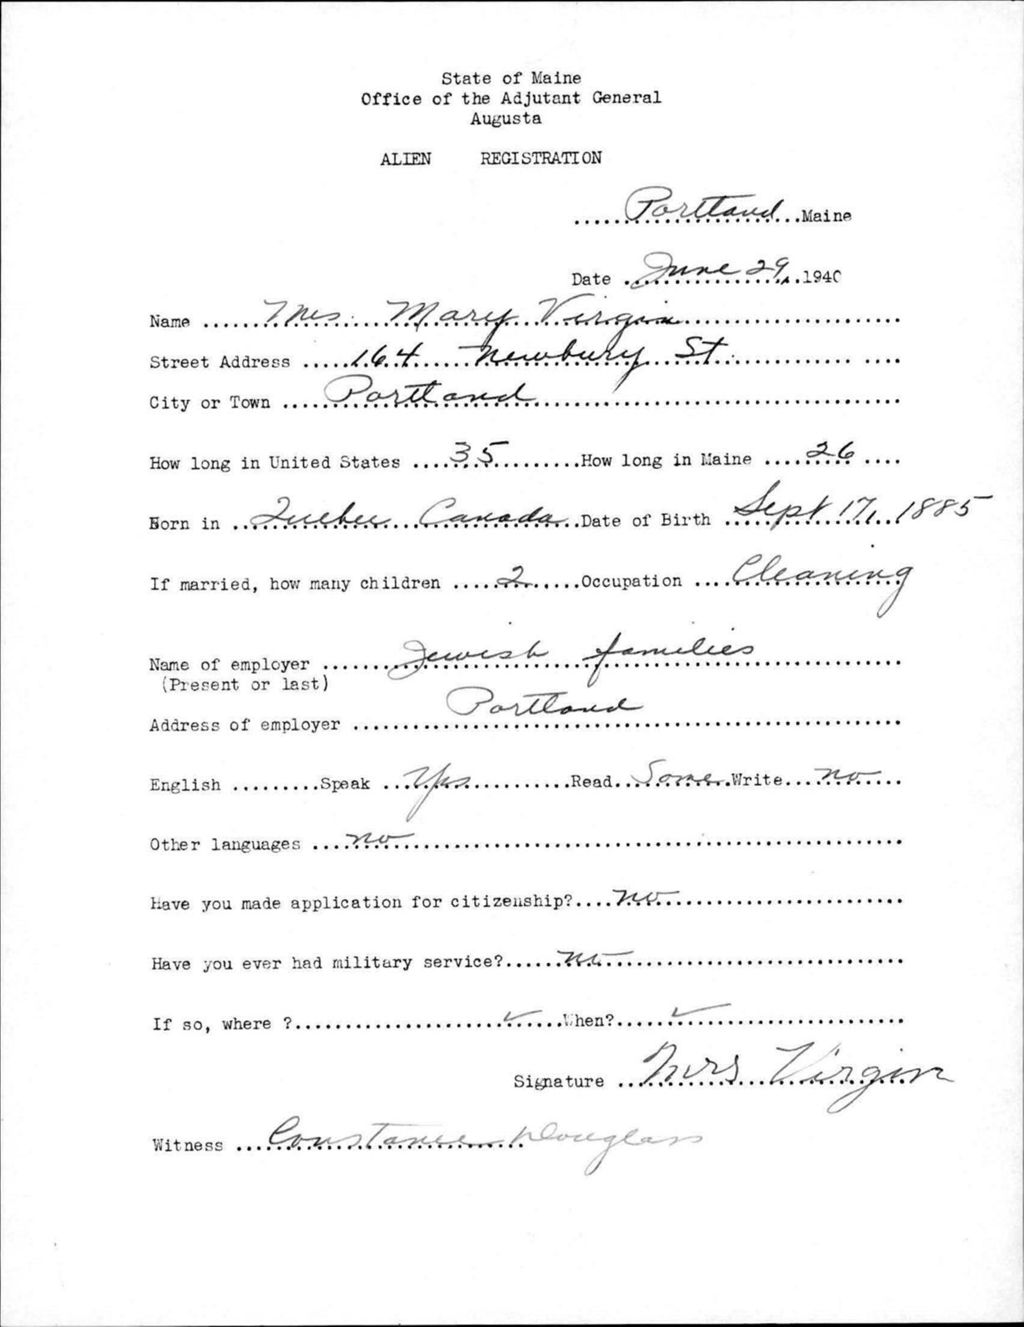 State of Maine
Office of the Adjutant General
Augusta
ALIEN REGISTRATION
......Portland...Maine
Date ..June 29,..1940
Name ......Mrs. Mary Virgin......
Street Address .....164 Newbury St.......
City or Town ....Portland......
How long in United States ....35..........How long in Maine ....26....
Born in ..Quebec Canada..Date of Birth ..Sept 17, 1885
If married, how many children .....2......Occupation ....Cleaning
Name of employer ......Jewish families......
(Present or last)
Address of employer ......Portland......
English .........Speak ...Yes............Read...Some..Write....no.....
Other languages ....no......
Have you made application for citizenship?....no......
Have you ever had military service?......no......
If so, where ?......✓......When?.....✓......
Signature ..Mrs Virgin
Witness ...Constance Douglass